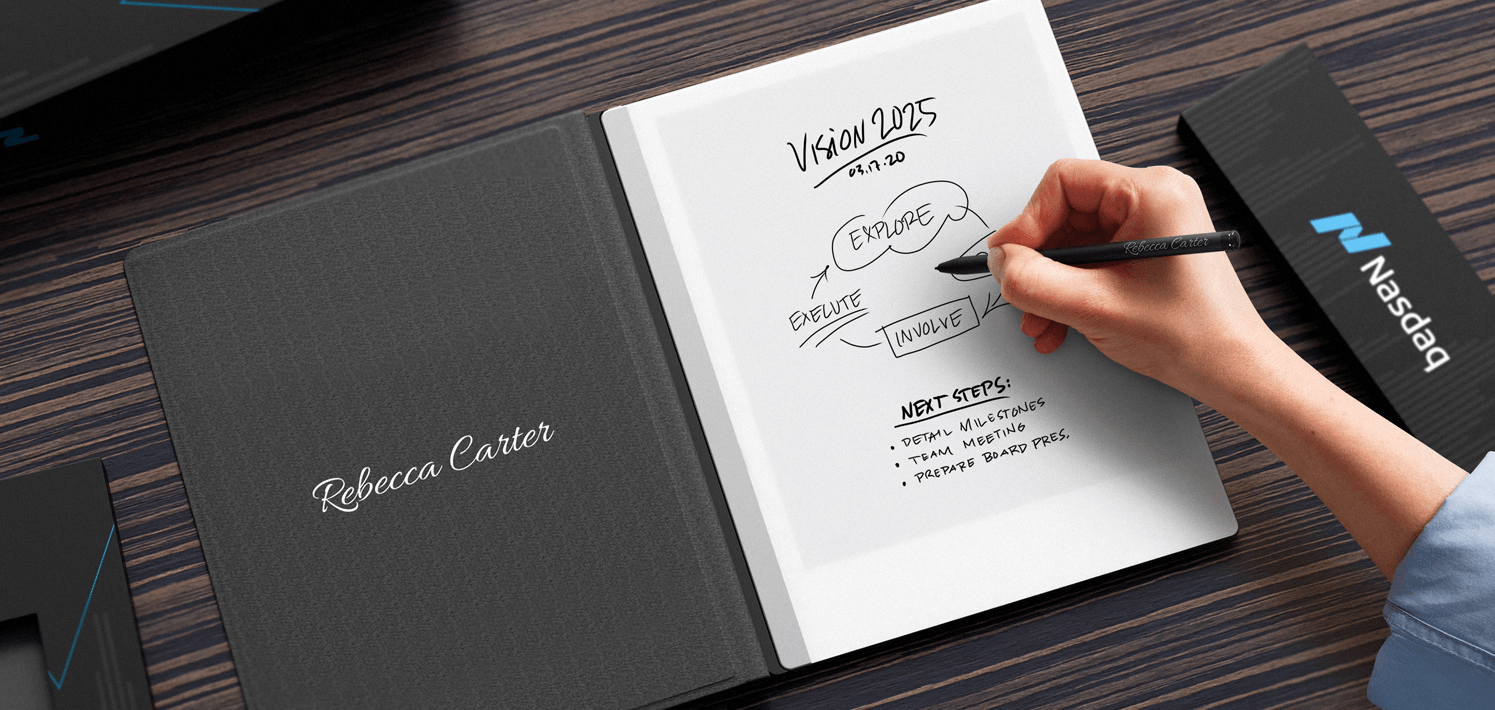 Rebecca Carter
Vision 2025
03.17.20
EXPLORE
EXECUTE
INVOLVE
NEXT STEPS:
• DETAIL MILESTONES
• TEAM MEETING
• PREPARE BOARD PRES.
Rebecca Carter
Nasdaq